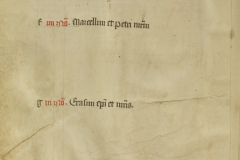 E iiii nōs. Marcellini et petri mr̄m
G iii nōs. Erasmi ep̄i et mr̄is.